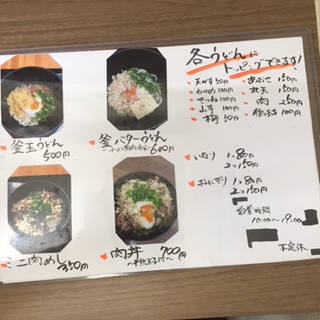 各うどんに
トッピングできます!
天かす 50円
わかめ 100円
きつね 100円
山芋 100円
梅 50円
あおさ 150円
丸天 150円
肉 250円
半熟玉子 100円
釜玉うどん
600円
釜バターうどん
600円
いなり 1ヶ80円
2ヶ150円
おにぎり 1ヶ80円
2ヶ150円
営業時間
10:00〜19:00
不定休
ミニ肉めし
350円
肉丼 700円
〜半熟玉子付〜